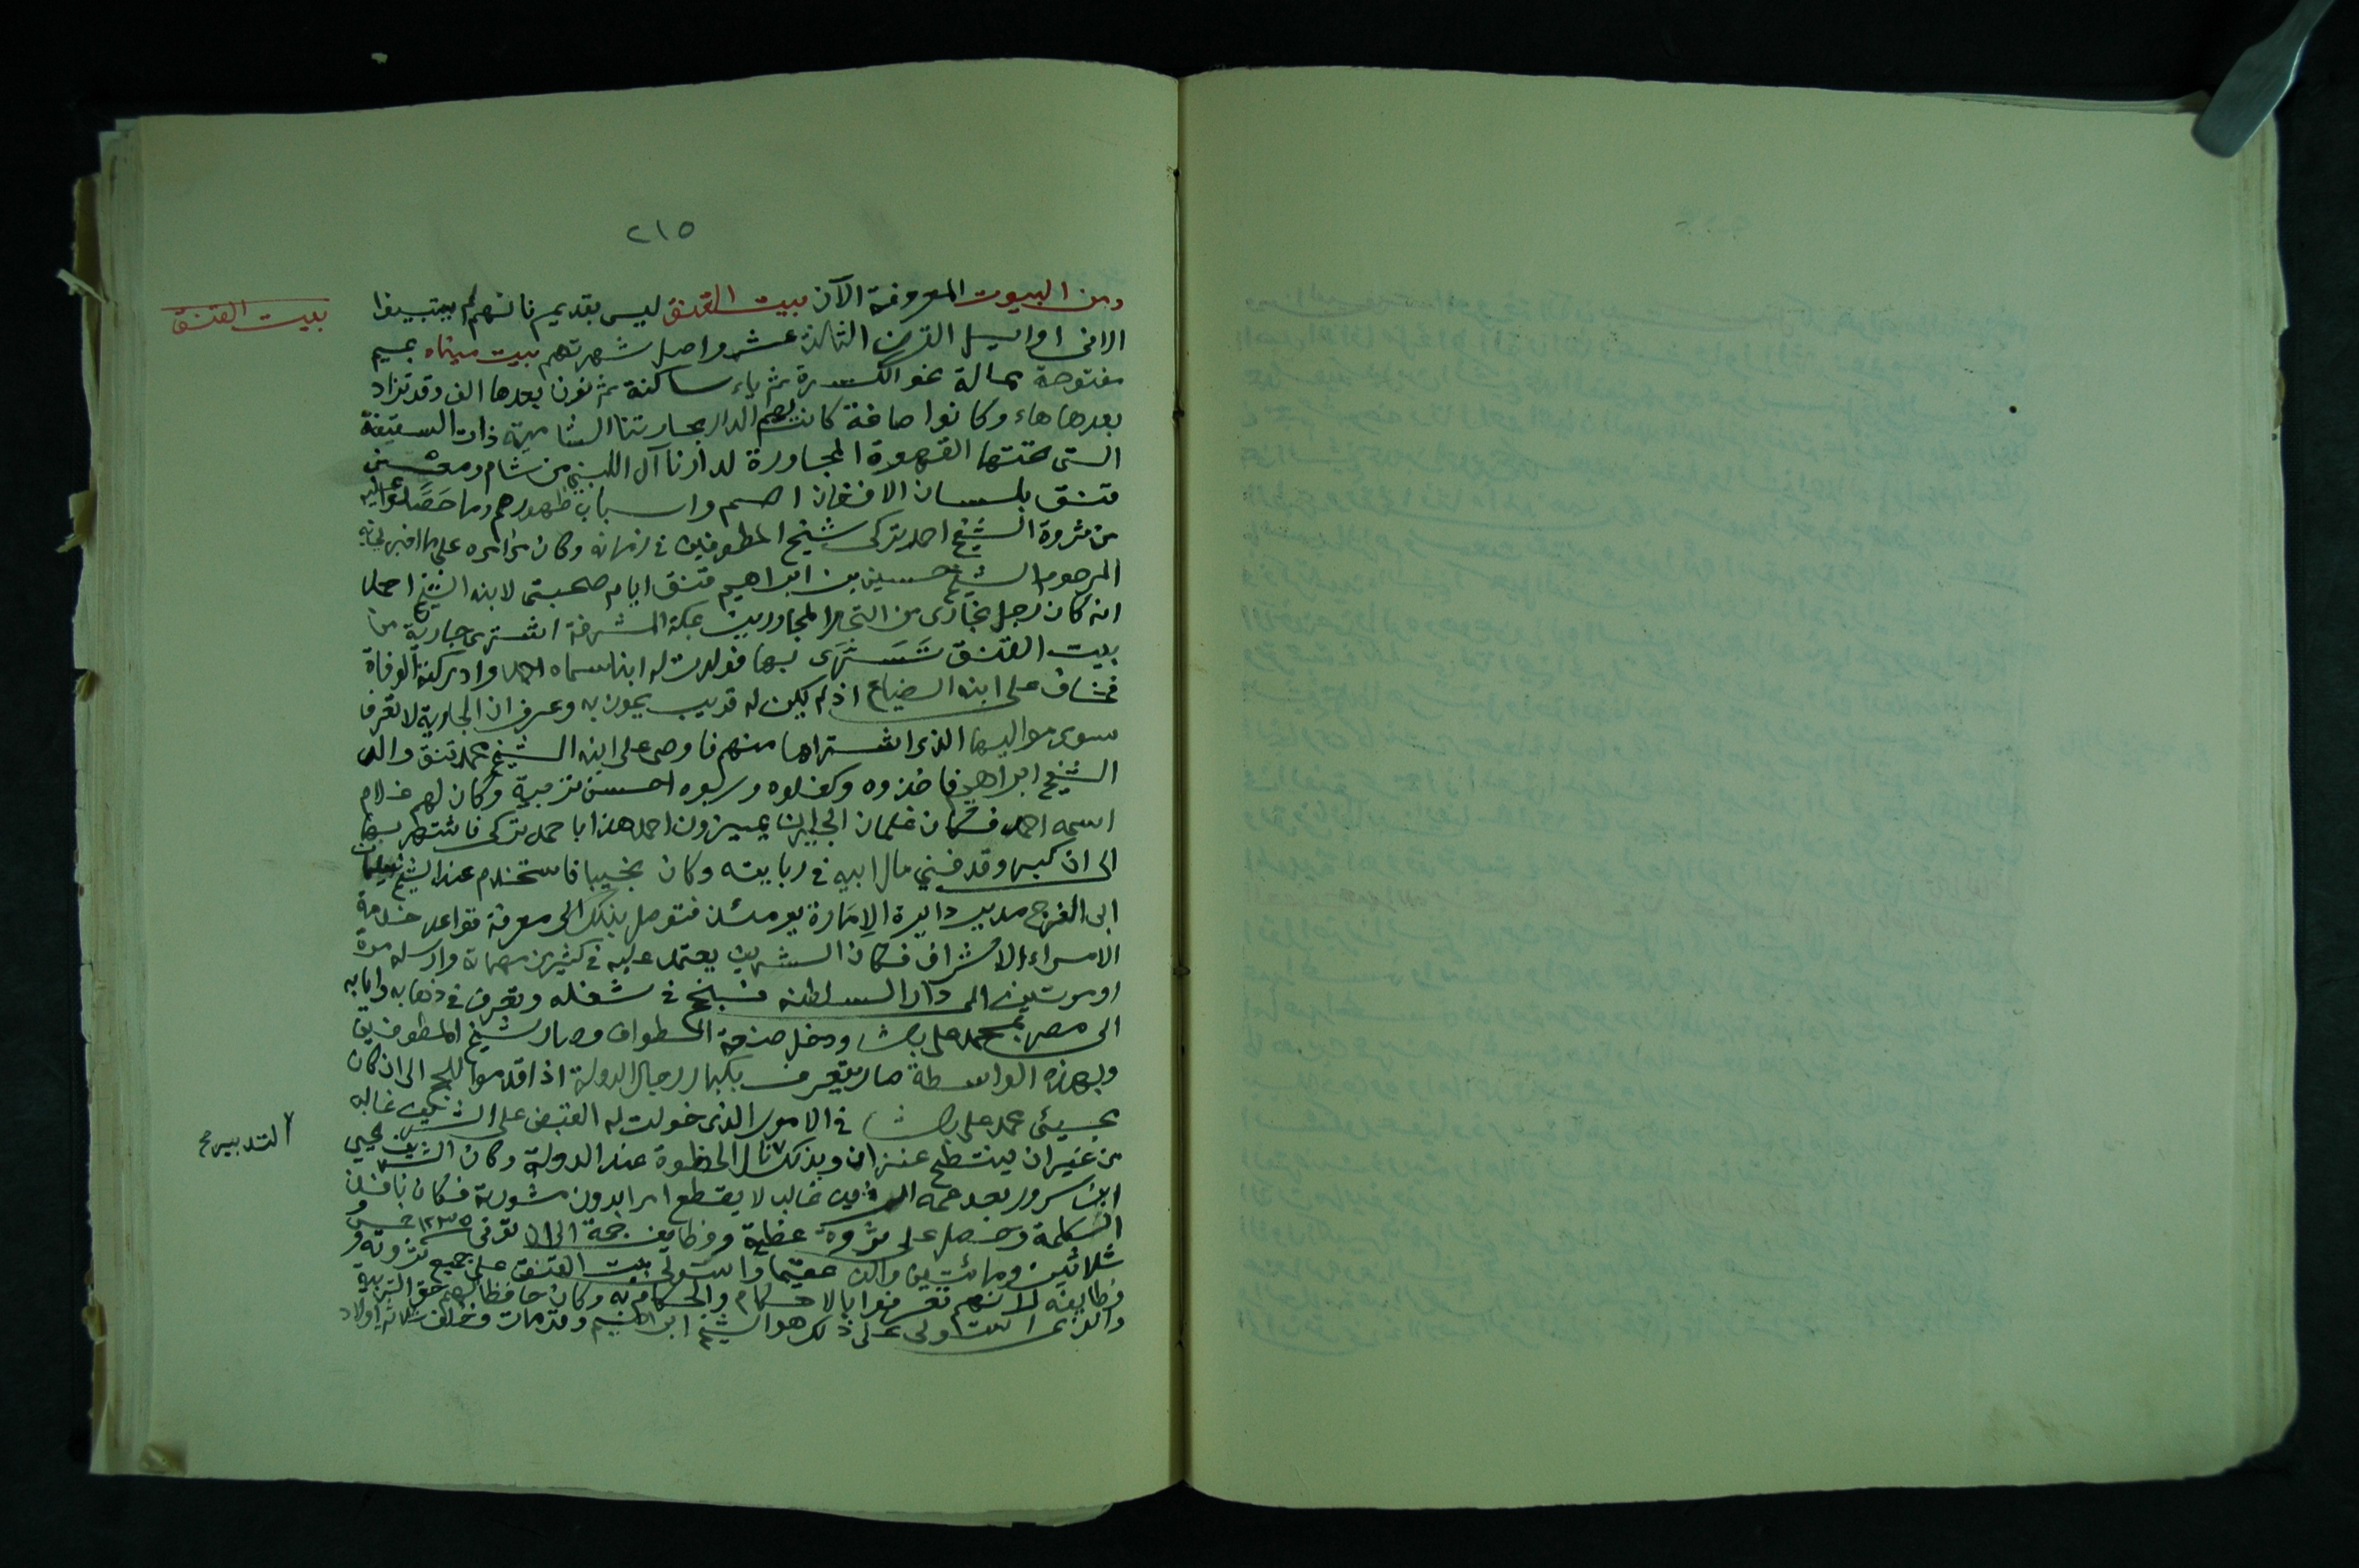 ٢١٥
ومن البيوت المعروفة الآن بيت القتنق ليس بقديم فانهم لم يبتبيتوا
بيت القتنق
الا في اوايل القرن الثالث عشر واصل شهرتهم بيت ميناه بميم
مفتوحة ممالة نحو الكسرة ثم ياء ساكنة ثم نون بعدها الف وقد تزاد
بعدها هاء وكانوا صاغة كانت لهم الدار بحارتنا الشامية ذات السقيفة
التي تحتها القهوة المجاورة لدارنا آل اللبني من شام ومعنى
قتنق بلسان الافغان اصم واسباب ظهورهم وما حَصَلوا عليه
من ثروة الشيخ احمد تركي شيخ المطوفين في زمانه وكان من امره على ما اخبرني به
المرحوم الشيخ حسين بن ابراهيم قتنق ايام صحبتي لابنه الشيخ احمد
انه كان رجل بخارى من التجار المجاورين بمكة المشرفة اشترى جارية من
بيت القتنق تَسَرَّى بها فولدت له ابنا سماه احمد وادركته الوفاة
فخاف على ابنه الضياع اذ لم يكن له قريب يمون به وعرف ان الجارية لا تعرف
سوى مواليها الذي اشتراها منهم فاوصى على ابنه الشيخ محمد قتنق والد
الشيخ ابراهيم فاخذوه وكفلوه وربوه احسن تربية وكان لهم غلام
اسمه احمد فكان غلمان الجيران يميزون احمد هذا باحمد تركي فاشتهر بها
الى ان كبر وقد فني مال ابيه في ربايته وكان نجيبا فاستخدم عند الشيخ سليمان
ابي الفرج مدير دايرة الإمارة يومئذ فتوصل بذلك الى معرفة قواعد خدمة
الامراء الاشراف فكان الشريف يعتمد عليه في كثير من مهماته وارسله مرة
او مرتين الى دار السلطنة فنجح في شغله وتعرف في ذهابه وايابه
الى مصر بمحمد علي باشا ودخل صنعة الطواف وصار شيخ المطوفين
وبهذه الواسطة صار يتعرف بكبار رجال الدولة اذا قدموا للحج الى ان كان
مجيئ محمد علي باشا في الامور الذي خولت له القبض على الشريف غالب
التدبير صح
من غير ان ينتطح عنزان وبذلك نال الحظوة عند الدولة وكان الشريف يحيى
ابن سرور بعد عمه الشريف غالب لا يقطع امرا بدون مشورته فكان نافذ
الكلمة وحصل على ثروة عظيمة ووظايف جمة الى ان توفى ١٢٣٥ خمس و
ثلاثين ومائتين والف عقيما واستولى بيت القتنق على جميع ثروته و
وظايفه لانهم تعرفوا بالاحكام والحكام به وكان حافظا لهم حق التربية
والذي استولى على ذلك هو الشيخ ابراهيم وقد مات وخلف ثلاثة اولاد